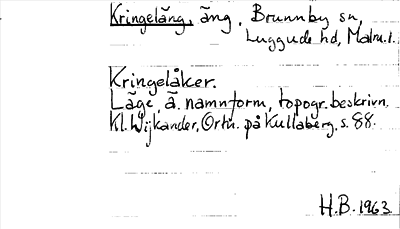 Kringeläng, äng, Brunnby sn,
Luggude hd, Malm. l.
Kringelåker.
Läge, ä. namnform, topogr. beskrivn.
Kl. Wijkander, Ortn. på Kullaberg, s. 88.
H.B. 1963